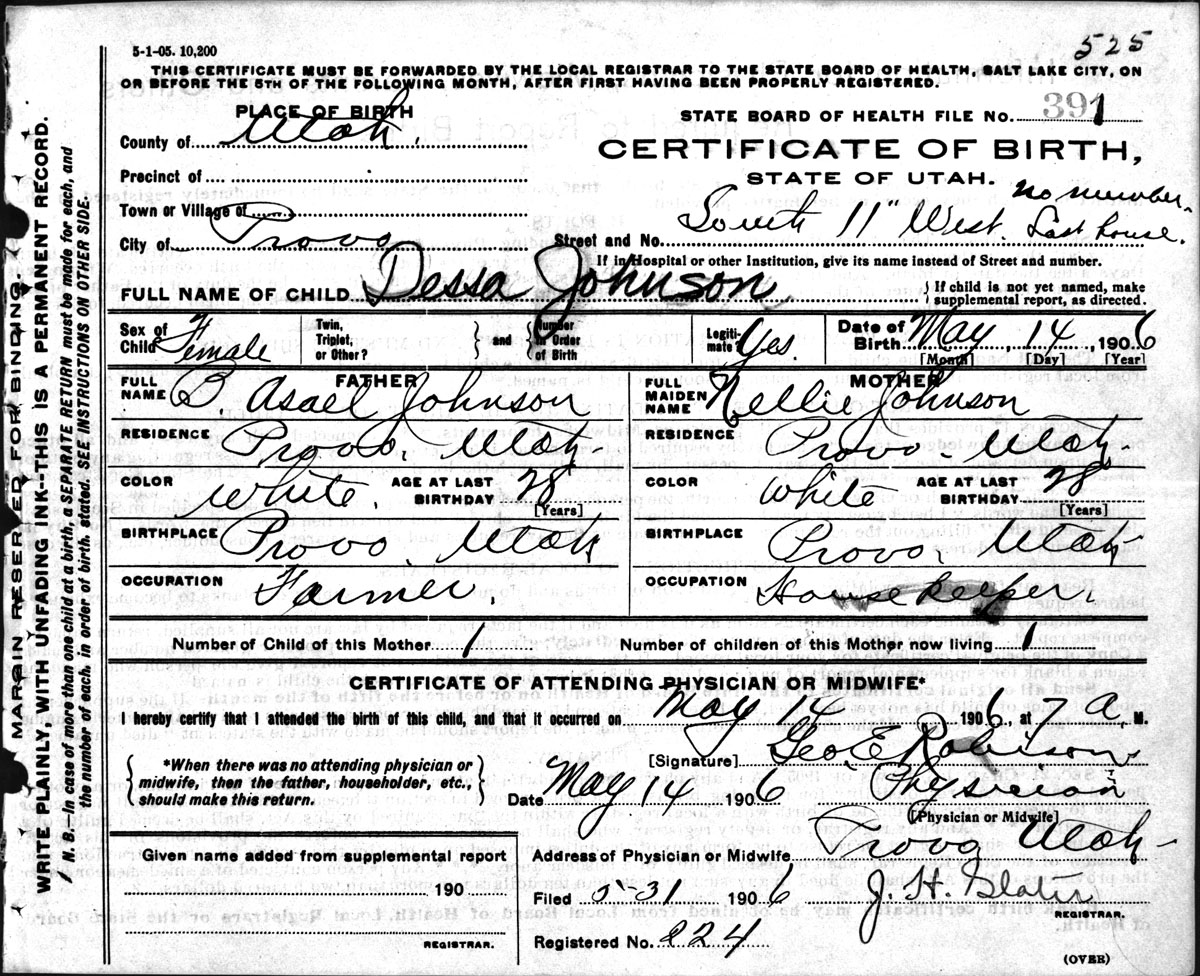 525
5-1-05. 10,200
THIS CERTIFICATE MUST BE FORWARDED BY THE LOCAL REGISTRAR TO THE STATE BOARD OF HEALTH, SALT LAKE CITY, ON
OR BEFORE THE 5TH OF THE FOLLOWING MONTH, AFTER FIRST HAVING BEEN PROPERLY REGISTERED.
PLACE OF BIRTH
STATE BOARD OF HEALTH FILE No. 391
County of Utah.
CERTIFICATE OF BIRTH,
Precinct of
STATE OF UTAH.
no number
Town or Village of
City of Provo
Street and No. South 11" West. Last house.
If in Hospital or other Institution, give its name instead of Street and number.
FULL NAME OF CHILD Dessa Johnson
{ If child is not yet named, make
supplemental report, as directed.
Sex of Child Female
Twin, Triplet, or Other?
} and {
Number in Order of Birth
Legiti-mate? Yes.
Date of Birth May 14 1906
[Month] [Day] [Year]
FATHER
FULL NAME B. Asael Johnson
MOTHER
FULL MAIDEN NAME Nellie Johnson
RESIDENCE Provo. Utah.
RESIDENCE Provo. Utah.
COLOR White. AGE AT LAST BIRTHDAY 28 [Years]
COLOR White AGE AT LAST BIRTHDAY 28 [Years]
BIRTHPLACE Provo. Utah
BIRTHPLACE Provo. Utah
OCCUPATION Farmer.
OCCUPATION House keeper.
Number of Child of this Mother 1
Number of children of this Mother now living 1
CERTIFICATE OF ATTENDING PHYSICIAN OR MIDWIFE*
I hereby certify that I attended the birth of this child, and that it occurred on May 14 1906, at 1 A. M.
{ *When there was no attending physician or
midwife, then the father, householder, etc.,
should make this return. }
[Signature] Geo E Robison
Date May 14 1906 Physician
[Physician or Midwife]
Given name added from supplemental report
190
REGISTRAR.
Address of Physician or Midwife, Provo Utah
Filed 5-31 1906 J. H. Slater
REGISTRAR.
Registered No. 224
(OVER)
MARGIN RESERVED FOR BINDING
WRITE PLAINLY, WITH UNFADING INK--THIS IS A PERMANENT RECORD.
N. B. In case of more than one child at a birth, a SEPARATE RETURN must be made for each, and
the number of each, in order of birth, stated. SEE INSTRUCTIONS ON OTHER SIDE.